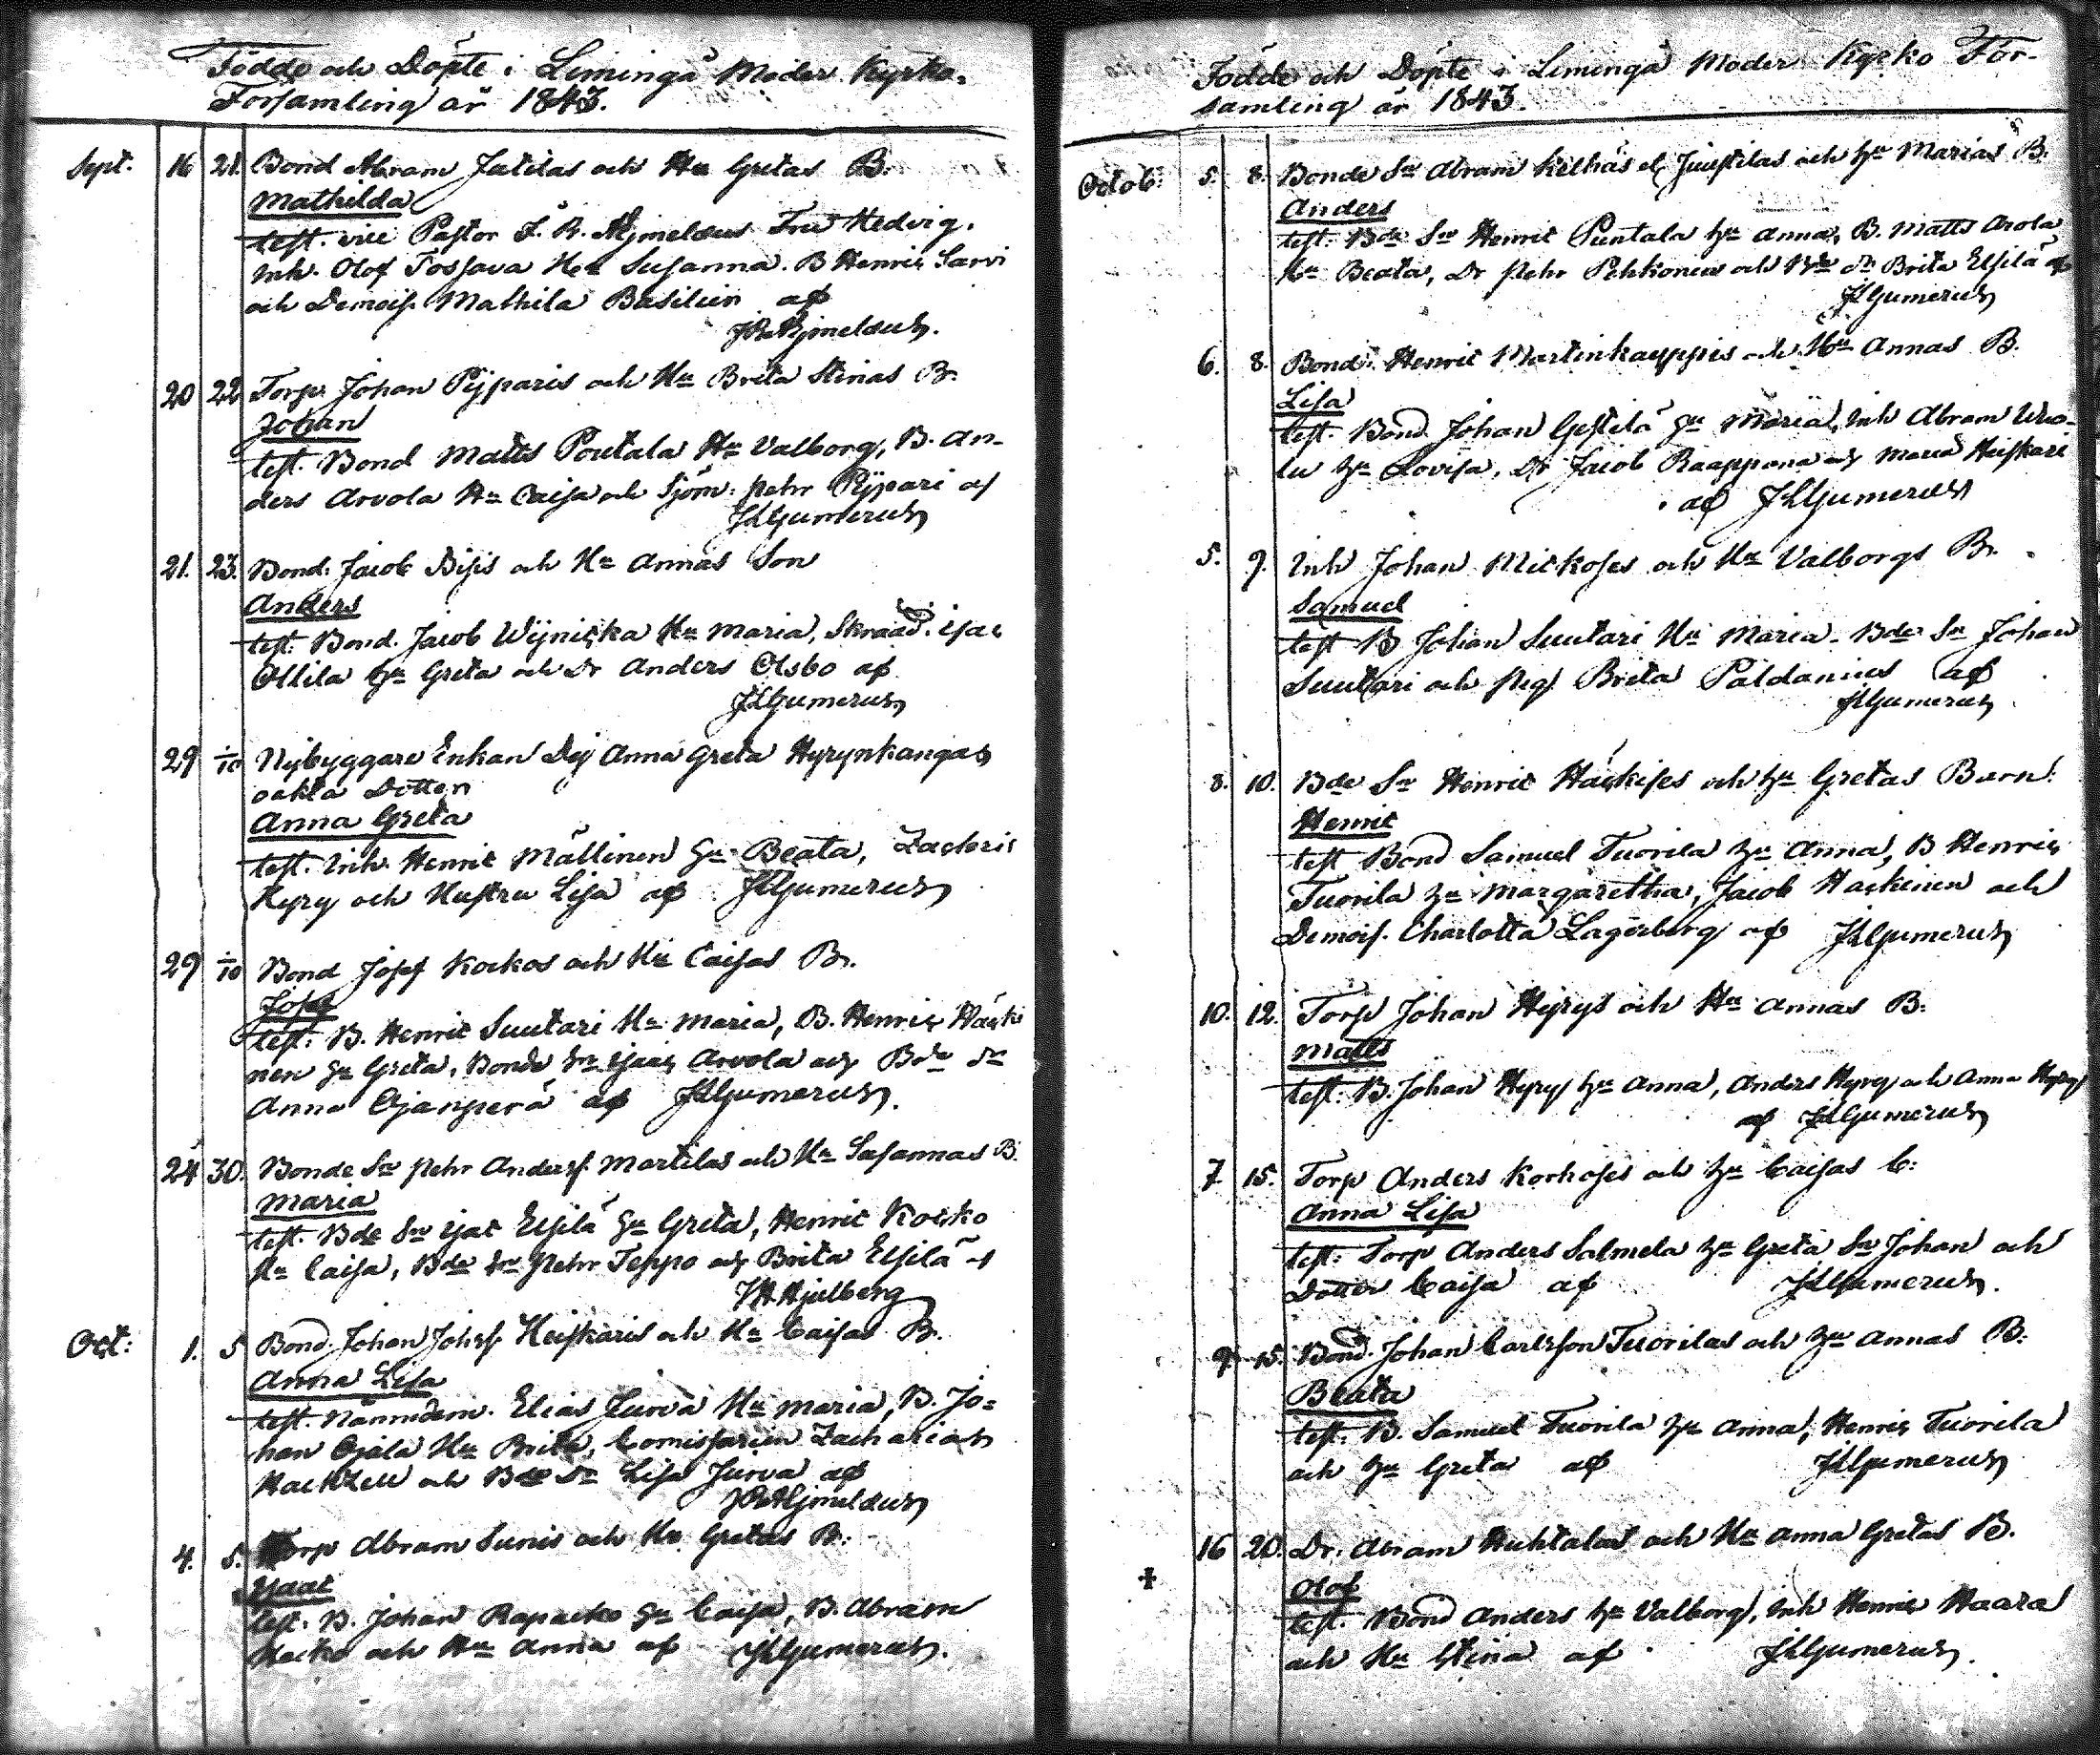 Födde och Döpte i Limingå Moder Kyrko-
Församling år 1843.
Sept. 16 21. Bond Abram Jutilas och Hu Gretas B.
Mathilda
test. vice Pastor J. R. Hjmelæus Fru Hedvig.
Inh. Olof Tossava Hu Susanna. B Henric Sarvi
och Demois. Mathila Basilien af
JRHjmelæus.
20 22 Torp. Johan Pÿparis och Hu Brita Stinas B.
Johan
test. Bond Matts Poutala Hu Valborg, B. An-
ders Arvola Hu Caisa och Sjöm. Pehr Pÿpari af
JLGumerus
21. 23. Bond. Jacob Bisis och Hu Annas Son
Anders
test. Bond. Jacob Wÿnikka Hu Maria, Skrädd. Isac
Ollila hu Greta och Dr Anders Olsbo af
JLGumerus
29 1/10 Nybyggare Enkan Dej Anna Greta Hyrynkangas
oäkta Dotter
Anna Greta
test. Inh. Henric Mällinen hu Beata, Zachris
Hyry och Hustru Lisa af JLGumerus
29 1/10 Bond Josef Kockos och Hu Caisas B.
Josef
test. B. Henric Suutari Hu Maria, B. Henric Häcki
nen hu Greta, Bonde Sn Isaac Arvola och Bde Dr
Anna Ojanperä af JLGumerus.
24 30. Bonde Sn Pehr Anders. Martilas och Hu Susannas B.
Maria
test. Bde Sn Isac Elsilä hu Greta, Henric Kocko
hu Caisa, Bde Sn Pehr Teppo och Brita Elsilä af
Hjulberg
Oct: 1. 5 Bond. Johan Johss. Heiskaris och Hu Caisas B.
Anna Lisa
test. Nämndem. Elias Jurva Hu Maria, B. Jo-
han Ojala Hu Brita, Comissarien Zacharias
Hackzell och Bde Dr Lisa Jurva af
JRHjmelæus
4. 5. Torp Abram Sunis och Hu Gretas B.
Isaac
test. B. Johan Rapacko hu Caisa, B. Abram
Hacko och Hu Anna af JLGumerus.
Födde och Döpte i Limingå Moder Kyrko För-
samling år 1843.
Octob: 5. 8. Bonde Sn Abram Kelhäs el. Junttilas och hu Marias B.
Anders
test. Bde Sn Henric Puntala hu Anna, B. Matts Arola
hu Beata, Dr Pehr Pehkonen och Bde Dr Brita Elsilä af
JLGumerus
6. 8. Bond. Henric Martinkauppis och Hu Annas B.
Lisa
test. Bond Johan Gestilä hu Maria, Inh Abram Uuo-
lu hu Lovisa, Dr Jacob Raappana och Maria Heiskari
af JLGumerus
5. 9. Inh Johan Mickoses och Hu Valborgs B.
Samuel
test B Johan Suutari Hu Maria. Bde Sn Johan
Suutari och Pig. Brita Paldanius af
JLGumerus
8. 10. Bde Sn Henric Häckises och hu Gretas Barn.
Henric
test Bond Samuel Tuorila hu Anna, B Henric
Tuorila hu Margaretha, Jacob Häckinen och
Demois. Charlotta Lagerborg af JLGumerus
10. 12. Torp Johan Hyrys och Hu Annas B.
Matts
test. B. Johan Hyry hu Anna, Anders Hyry och Anna Hyry
af JLGumerus
7 15. Torp Anders Korkoses och hu Caisas B.
Anna Lisa
test. Torp Anders Salmela hu Greta Sn Johan och
Dotter Caisa af JLGumerus.
9 15. Bond. Johan Carlsson Tuorilas och hu Annas B.
Beata
test. B. Samuel Tuorila hu Anna, Henric Tuorila
och hu Greta af JLGumerus
16 20. Dr. Abram Huhtalas och Hu Anna Gretas B.
Olof
test. Bond Anders hu Valborg, Inh Henric Haara
och Hu Stina af JLGumerus.